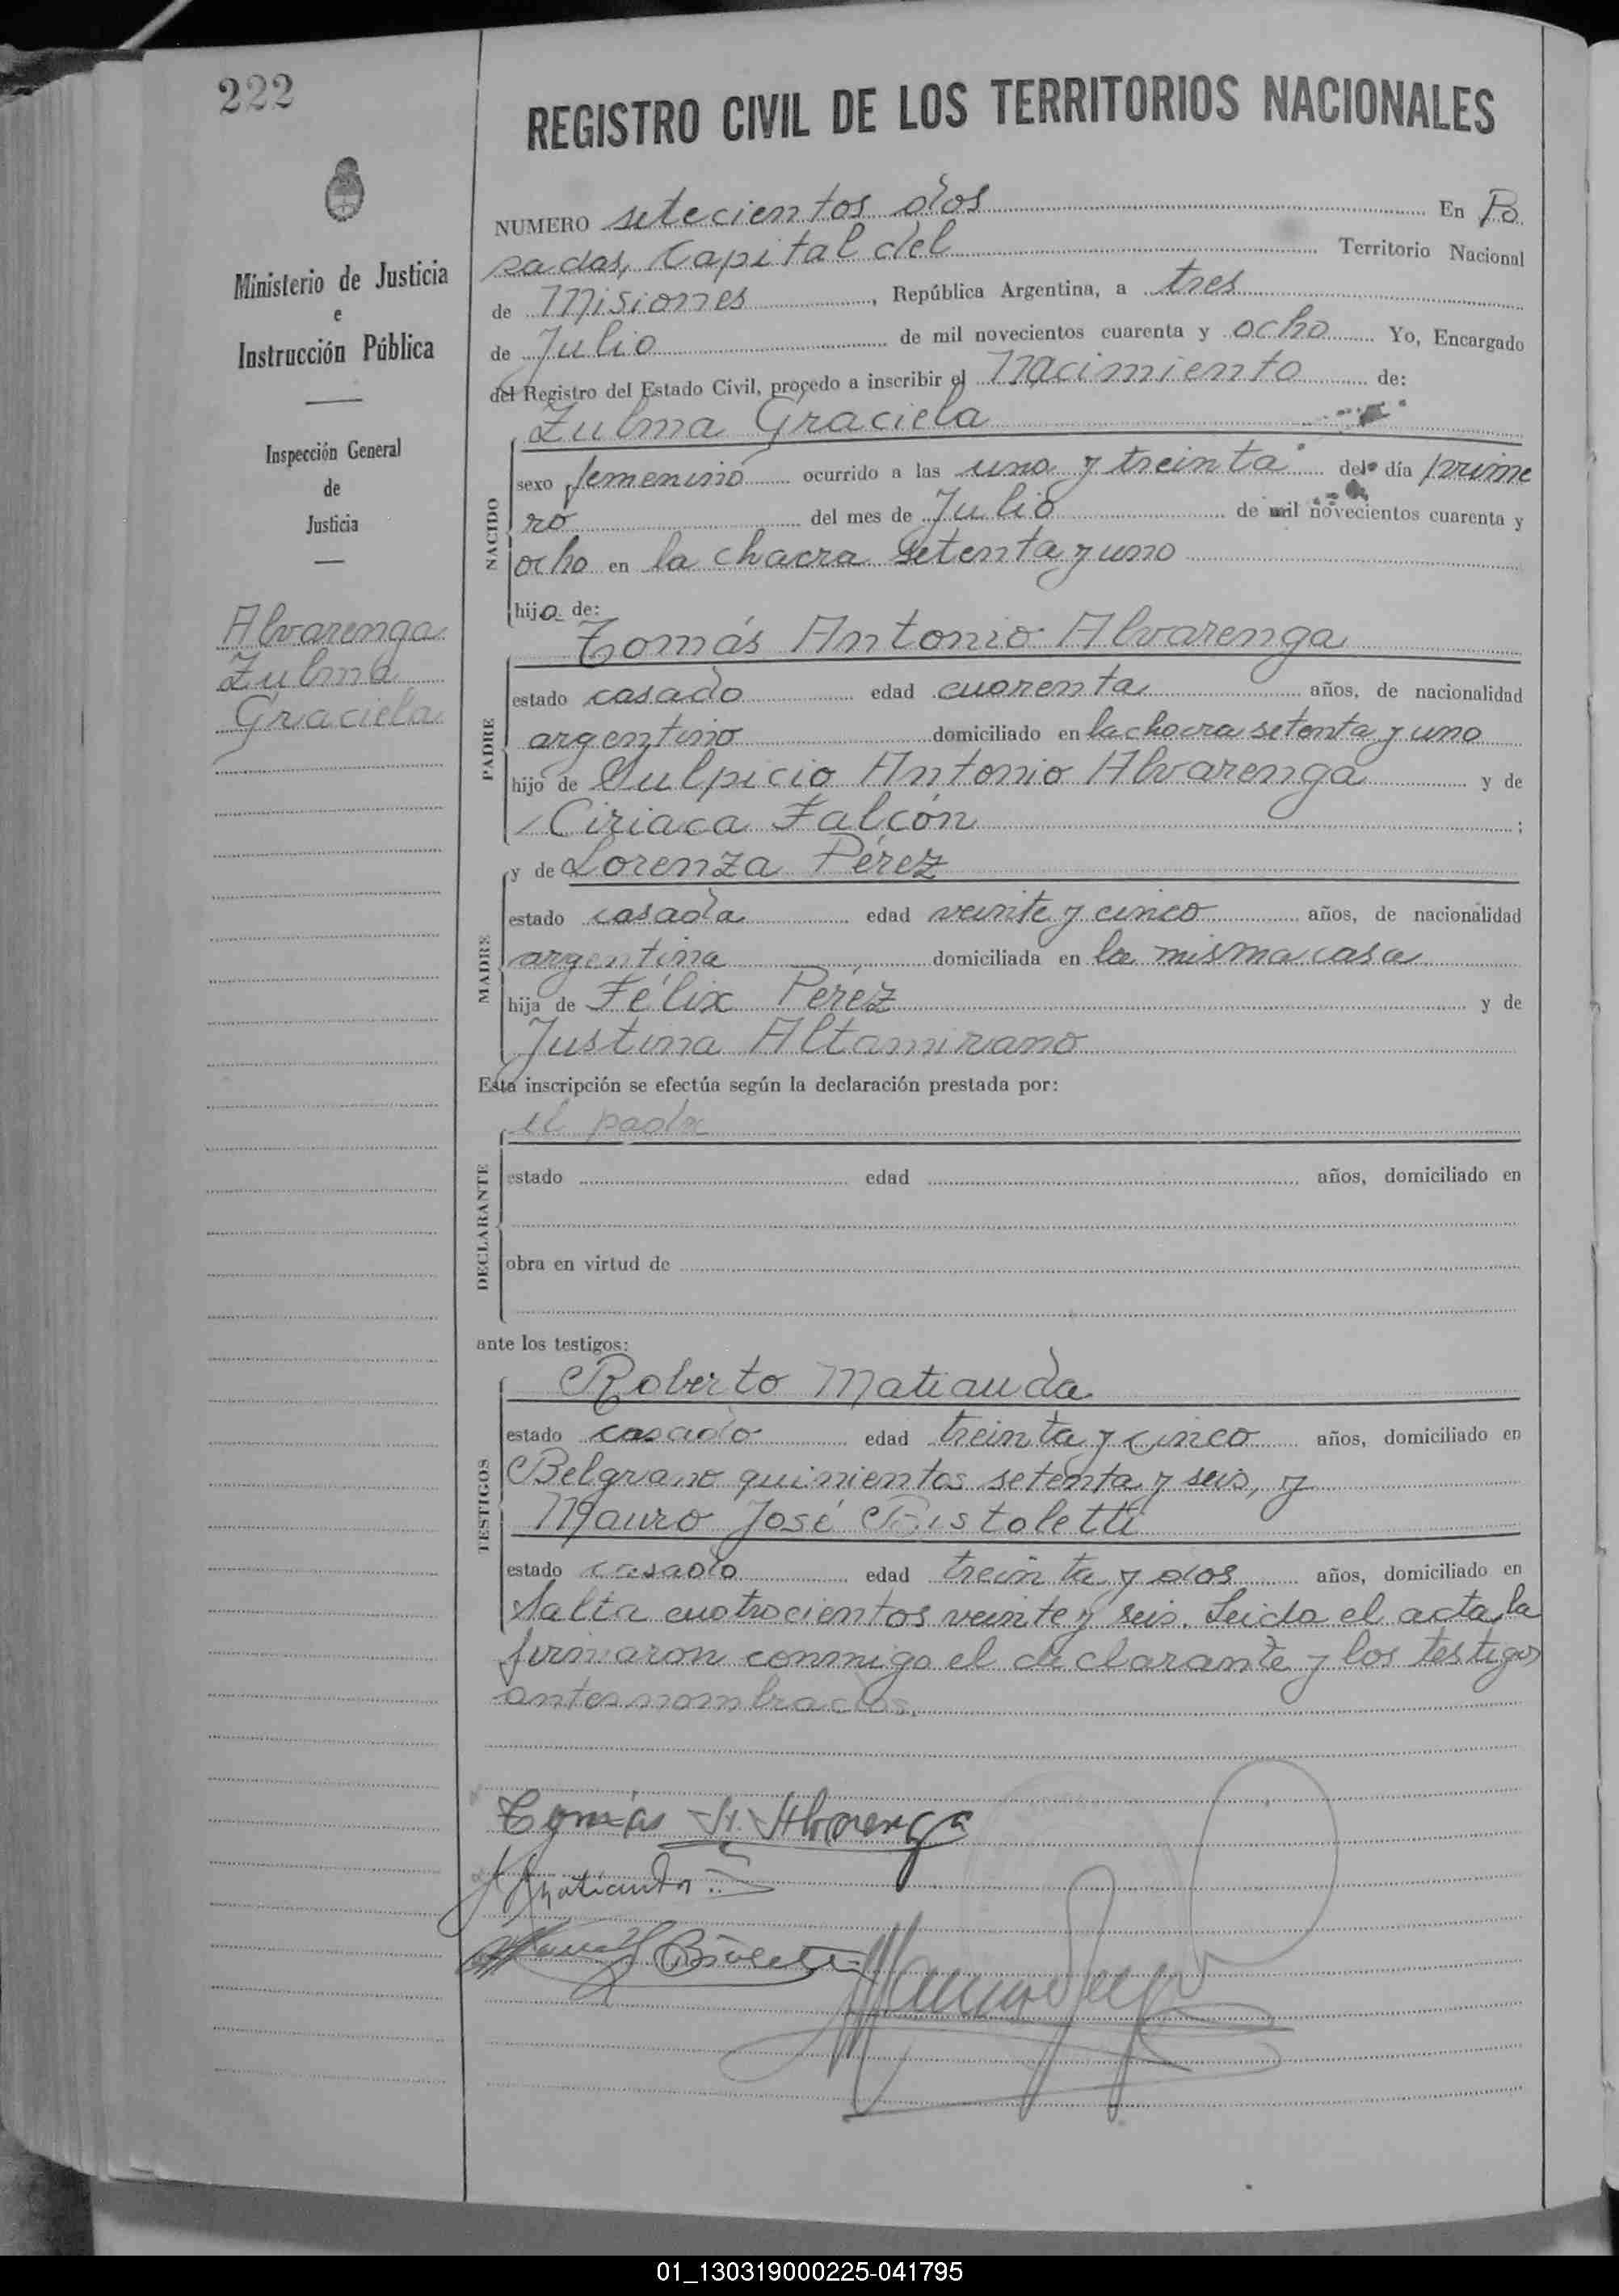 222
REGISTRO CIVIL DE LOS TERRITORIOS NACIONALES
Ministerio de Justicia
e
Instrucción Pública
Inspección General
de
Justicia
Alvarenga
Zulma
Graciela
NUMERO setecientos dos En Po
sadas, Capital del Territorio Nacional
de Misiones, República Argentina, a tres
de Julio de mil novecientos cuarenta y ocho Yo, Encargado
del Registro del Estado Civil, procedo a inscribir el Nacimiento de:
Zulma Graciela
NACIDO
sexo femenino ocurrido a las una y treinta del día prime
ro del mes de Julio de mil novecientos cuarenta y
ocho en la chacra setenta y uno
hija de:
Tomás Antonio Alvarenga
PADRE
estado casado edad cuarenta años, de nacionalidad
argentino domiciliado en la chacra setenta y uno
hijo de Sulpicio Antonio Alvarenga y de
Ciriaca Falcón ;
y de Lorenza Pérez
MADRE
estado casada edad veinte y cinco años, de nacionalidad
argentina domiciliada en la misma casa
hija de Félix Pérez y de
Justina Altamirano
Esta inscripción se efectúa según la declaración prestada por:
el padre
DECLARANTE
estado edad años, domiciliado en
obra en virtud de
ante los testigos:
Roberto Matiauda
TESTIGOS
estado casado edad treinta y cinco años, domiciliado en
Belgrano quinientos setenta y seis, y
Mauro José
estado casado edad treinta y dos años, domiciliado en
Salta cuatrocientos veinte y seis. Leida el acta, la
firmaron conmigo el declarante y los testigos
antes nombrados.
Tomás A. Alvarenga
Matiauda
01_130319000225-041795